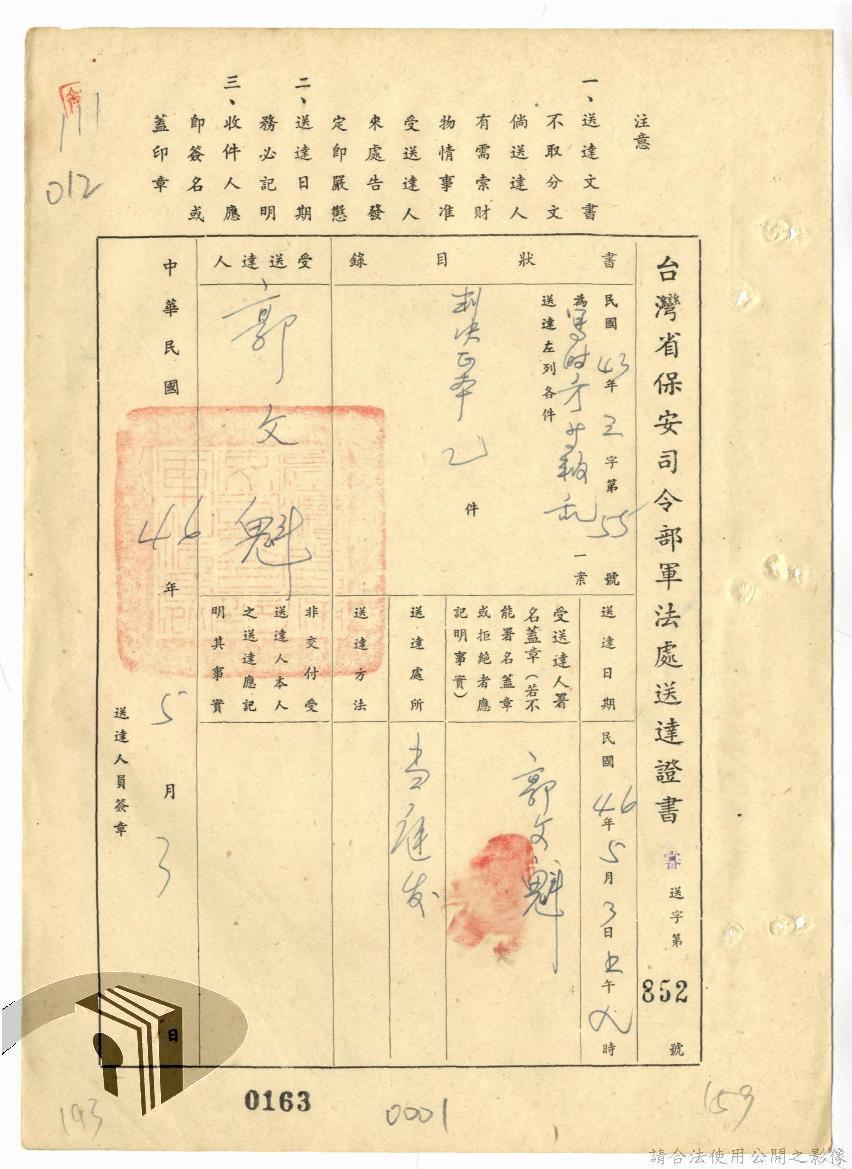 注意
一、送達文書
不取分文
倘送達人
有需索財
物情事准
受送達人
來處告發
定即嚴懲
二、送達日期
務必記明
三、收件人應
即簽名或
蓋印章
012
台灣省保安司令部軍法處送達證書
審
送字第
852
號
書狀目錄
民國43年三字第55號
為馮時方等叛亂一案
送達左列各件
判決正本乙件
受送達人
郭文魁
送達日期
民國46年5月3日上午八時
受送達人署
名蓋章(若不
能署名蓋章
或拒絕者應
記明事實)
郭文魁
送達處所
當庭發
送達方法
非交付受
送達人本人
之送達應記
明其事實
中華民國46年5月3日
送達人員簽章
193
0163
0001
159
請合法使用公開之影像